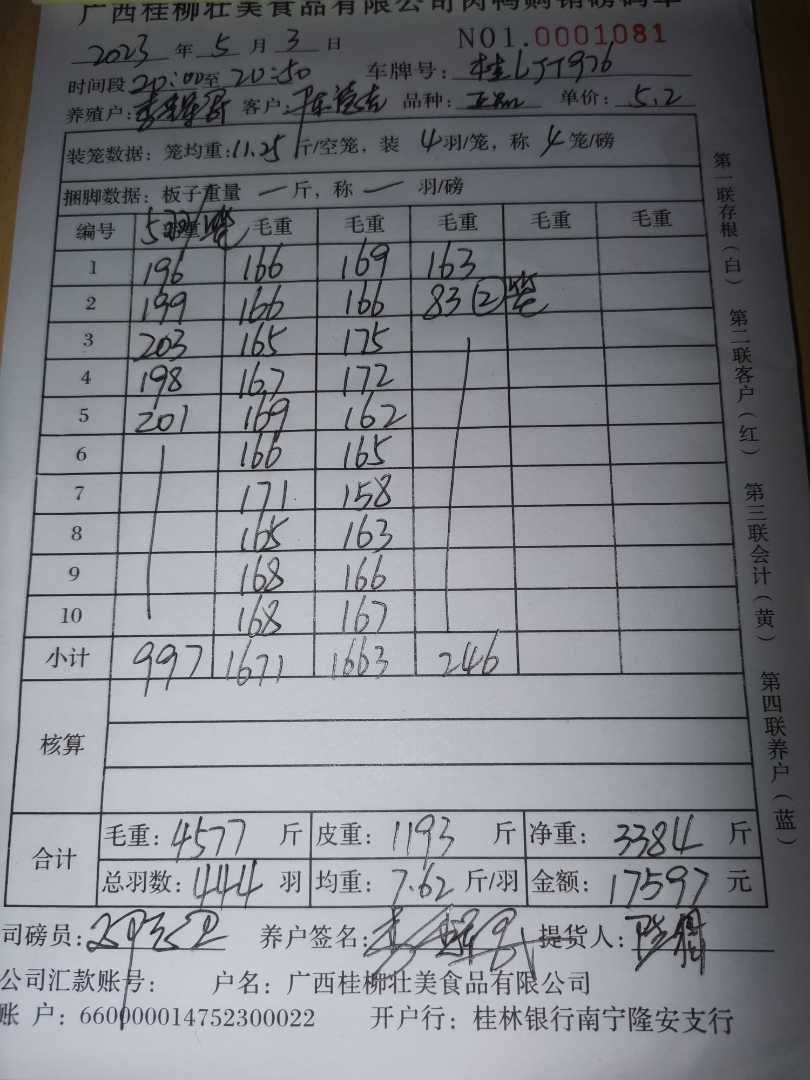 广西桂柳壮美食品有限公司肉鸭购销磅码单
2023 年 5 月 3 日 NO1.0001081
时间段 20:00至 20:50 车牌号: 桂LJT976
养殖户: 客户: 品种: 单价: 5.2
装笼数据: 笼均重: 11.25 斤/空笼, 装 4 羽/笼, 称 4 笼/磅
捆脚数据: 板子重量 一 斤, 称 一 羽/磅
编号 5 笼 毛重 毛重 毛重 毛重 毛重
1 196 166 169 163
2 199 166 166 83 ② 笼
3 203 165 175
4 198 167 172
5 201 169 162
6 166 165
7 171 158
8 165 163
9 168 166
10 168 167
小计 997 1671 1663 246
核算
合计
毛重: 4577 斤 皮重: 1193 斤 净重: 3384 斤
总羽数: 444 羽 均重: 7.62 斤/羽 金额: 17597 元
司磅员: 养户签名: 提货人:
公司汇款账号: 户名: 广西桂柳壮美食品有限公司
账 户: 660000014752300022 开户行: 桂林银行南宁隆安支行
第一联存根(白) 第二联客户(红) 第三联会计(黄) 第四联养户(蓝)